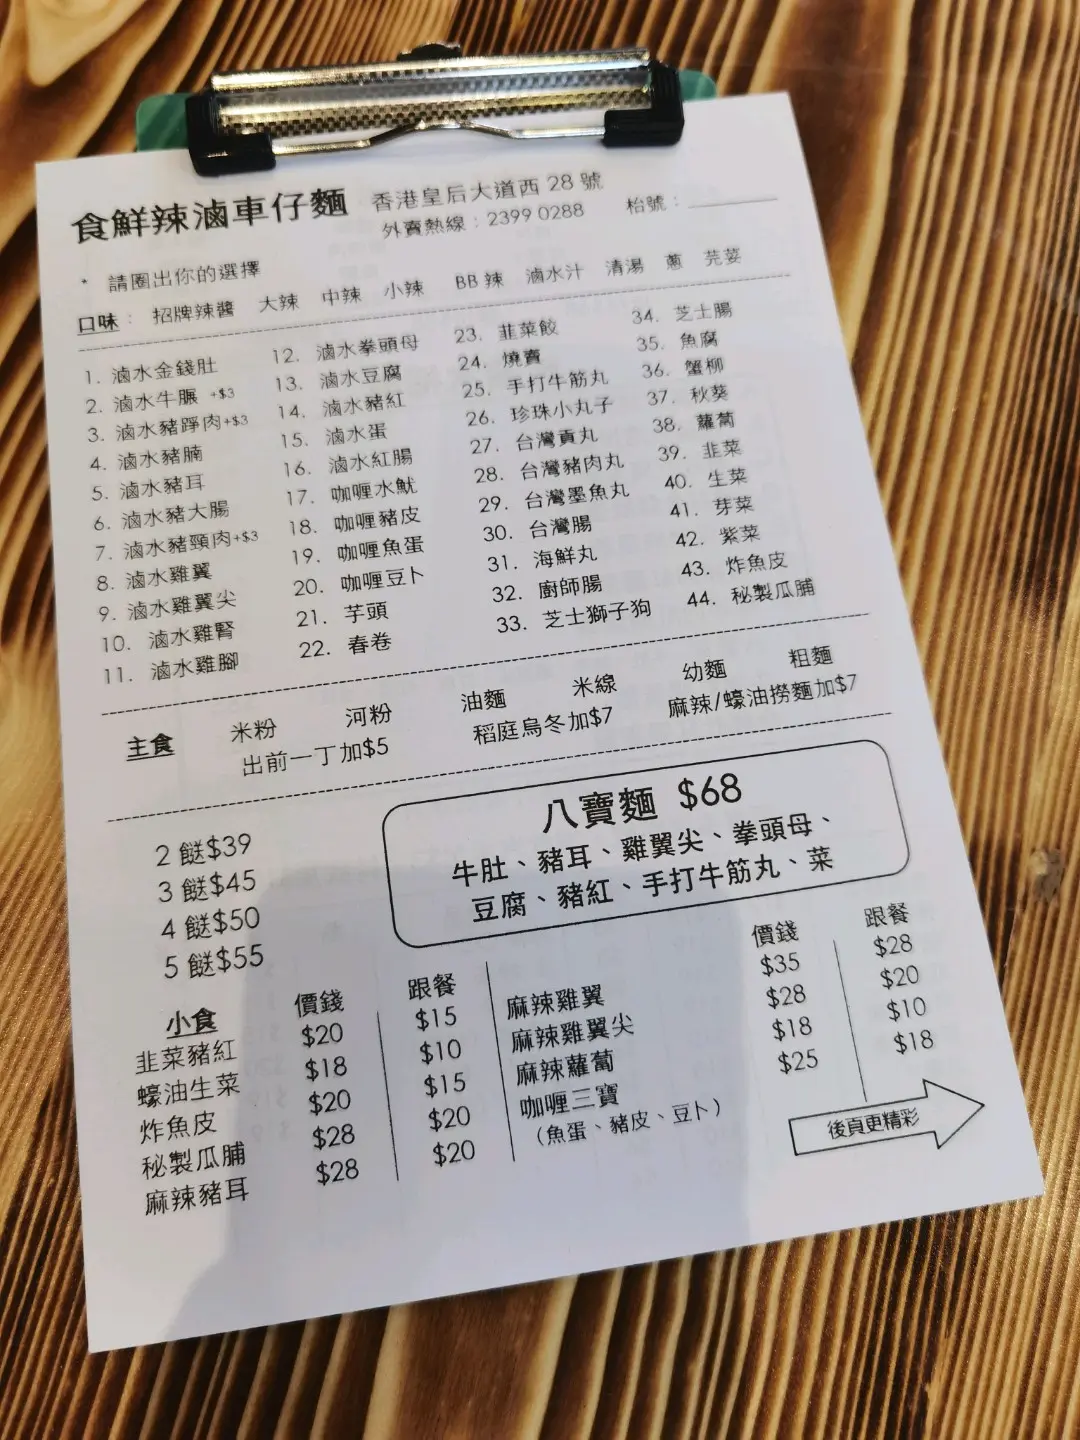 食鮮辣滷車仔麵
香港皇后大道西 28 號
外賣熱線：2399 0288
枱號：
* 請圈出你的選擇
口味： 招牌辣醬 大辣 中辣 小辣 BB 辣 滷水汁 清湯 蔥 芫荽
1. 滷水金錢肚
2. 滷水牛𦟌 +$3
3. 滷水豬踭肉+$3
4. 滷水豬腩
5. 滷水豬耳
6. 滷水豬大腸
7. 滷水豬頸肉+$3
8. 滷水雞翼
9. 滷水雞翼尖
10. 滷水雞腎
11. 滷水雞腳
12. 滷水拳頭母
13. 滷水豆腐
14. 滷水豬紅
15. 滷水蛋
16. 滷水紅腸
17. 咖喱水魷
18. 咖喱豬皮
19. 咖喱魚蛋
20. 咖喱豆卜
21. 芋頭
22. 春卷
23. 韭菜餃
24. 燒賣
25. 手打牛筋丸
26. 珍珠小丸子
27. 台灣貢丸
28. 台灣豬肉丸
29. 台灣墨魚丸
30. 台灣腸
31. 海鮮丸
32. 廚師腸
33. 芝士獅子狗
34. 芝士腸
35. 魚腐
36. 蟹柳
37. 秋葵
38. 蘿蔔
39. 韭菜
40. 生菜
41. 芽菜
42. 紫菜
43. 炸魚皮
44. 秘製瓜脯
主食 米粉 河粉 油麵 米線 幼麵 粗麵
出前一丁加$5 稻庭烏冬加$7 麻辣/蠔油撈麵加$7
2 餸$39
3 餸$45
4 餸$50
5 餸$55
八寶麵 $68
牛肚、豬耳、雞翼尖、拳頭母、
豆腐、豬紅、手打牛筋丸、菜
小食 價錢 跟餐
韭菜豬紅 $20 $15
蠔油生菜 $18 $10
炸魚皮 $20 $15
秘製瓜脯 $28 $20
麻辣豬耳 $28 $20
價錢 跟餐
麻辣雞翼 $35 $28
麻辣雞翼尖 $28 $20
麻辣蘿蔔 $18 $10
咖喱三寶 $25 $18
（魚蛋、豬皮、豆卜）
後頁更精彩